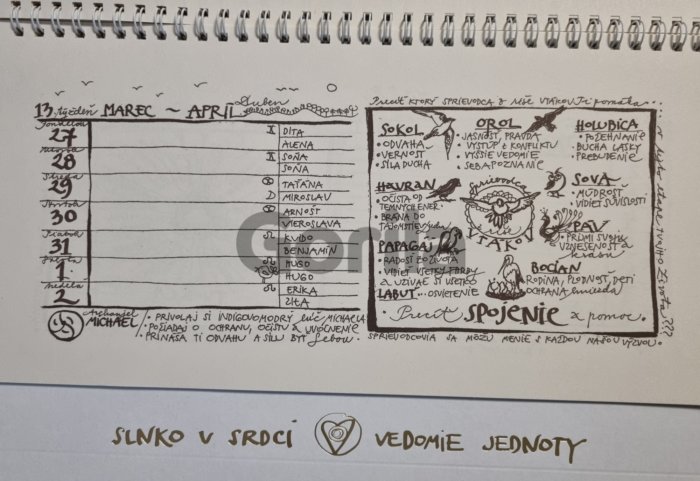 13. týždeň MAREC ~ APRÍL Duben
Pondelok
27
DITA
ALENA
Utorok
28
SOŇA
SOŇA
Streda
29
TAŤÁNA
MIROSLAV
Štvrtok
30
ARNOŠT
VIEROSLAVA
Piatok
31
KVIDO
BENJAMÍN
1
HUGO
HUGO
Nedeľa
2
ERIKA
ZITA
Archanjel
MICHAEL
• PRIVOLAJ SI INDIGOVOMODRÝ LÚČ MICHAELA
• POŽIADAJ O OCHRANU, OČISTU A UVOĽNENIE
• PRINÁŠA TI ODVAHU A SILU BYŤ Sebou.
Precíť KTORÝ SPRIEVODCA Z RÍŠE VTÁKOV Ti pomáha...
SOKOL
• ODVAHA
• VERNOSŤ
• SILA DUCHA
OROL
• JASNOSŤ, PRAVDA
• VÝSTUP Z KONFLIKTU
• VYŠŠIE VEDOMIE
• SEBAPOZNANIE
HOLUBICA
• POŽEHNANIE
DUCHA LÁSKY
• PREBUDENIE
HAVRAN
• OČISTA OD
TEMNÝCH ENER.
• BRÁNA DO
TAJOMSTIEV
Sprievodca
z ríše
VTÁKOV
SOVA
• MÚDROSŤ
• VIDIEŤ SÚVISLOSTI
PÁV
• PRIJMI SVOJU
VZNEŠENOSŤ a
krásu
PAPAGÁJ
• RADOSŤ ZO ŽIVOTA
• VIDIEŤ VŠETKY FARBY
A UŽÍVAŤ SI VŠETKO
LABUŤ... OSVIETENIE
BOCIAN
RODINA, PLODNOSŤ, DETI
OCHRANA hniezda
• Precíť SPOJENIE a pomoc.
SPRIEVODCOVIA SA MÔŽU MENIŤ S KAŽDOU NAŠOU VÝZVOU.
Gorila
SLNKO V SRDCI VEDOMIE JEDNOTY